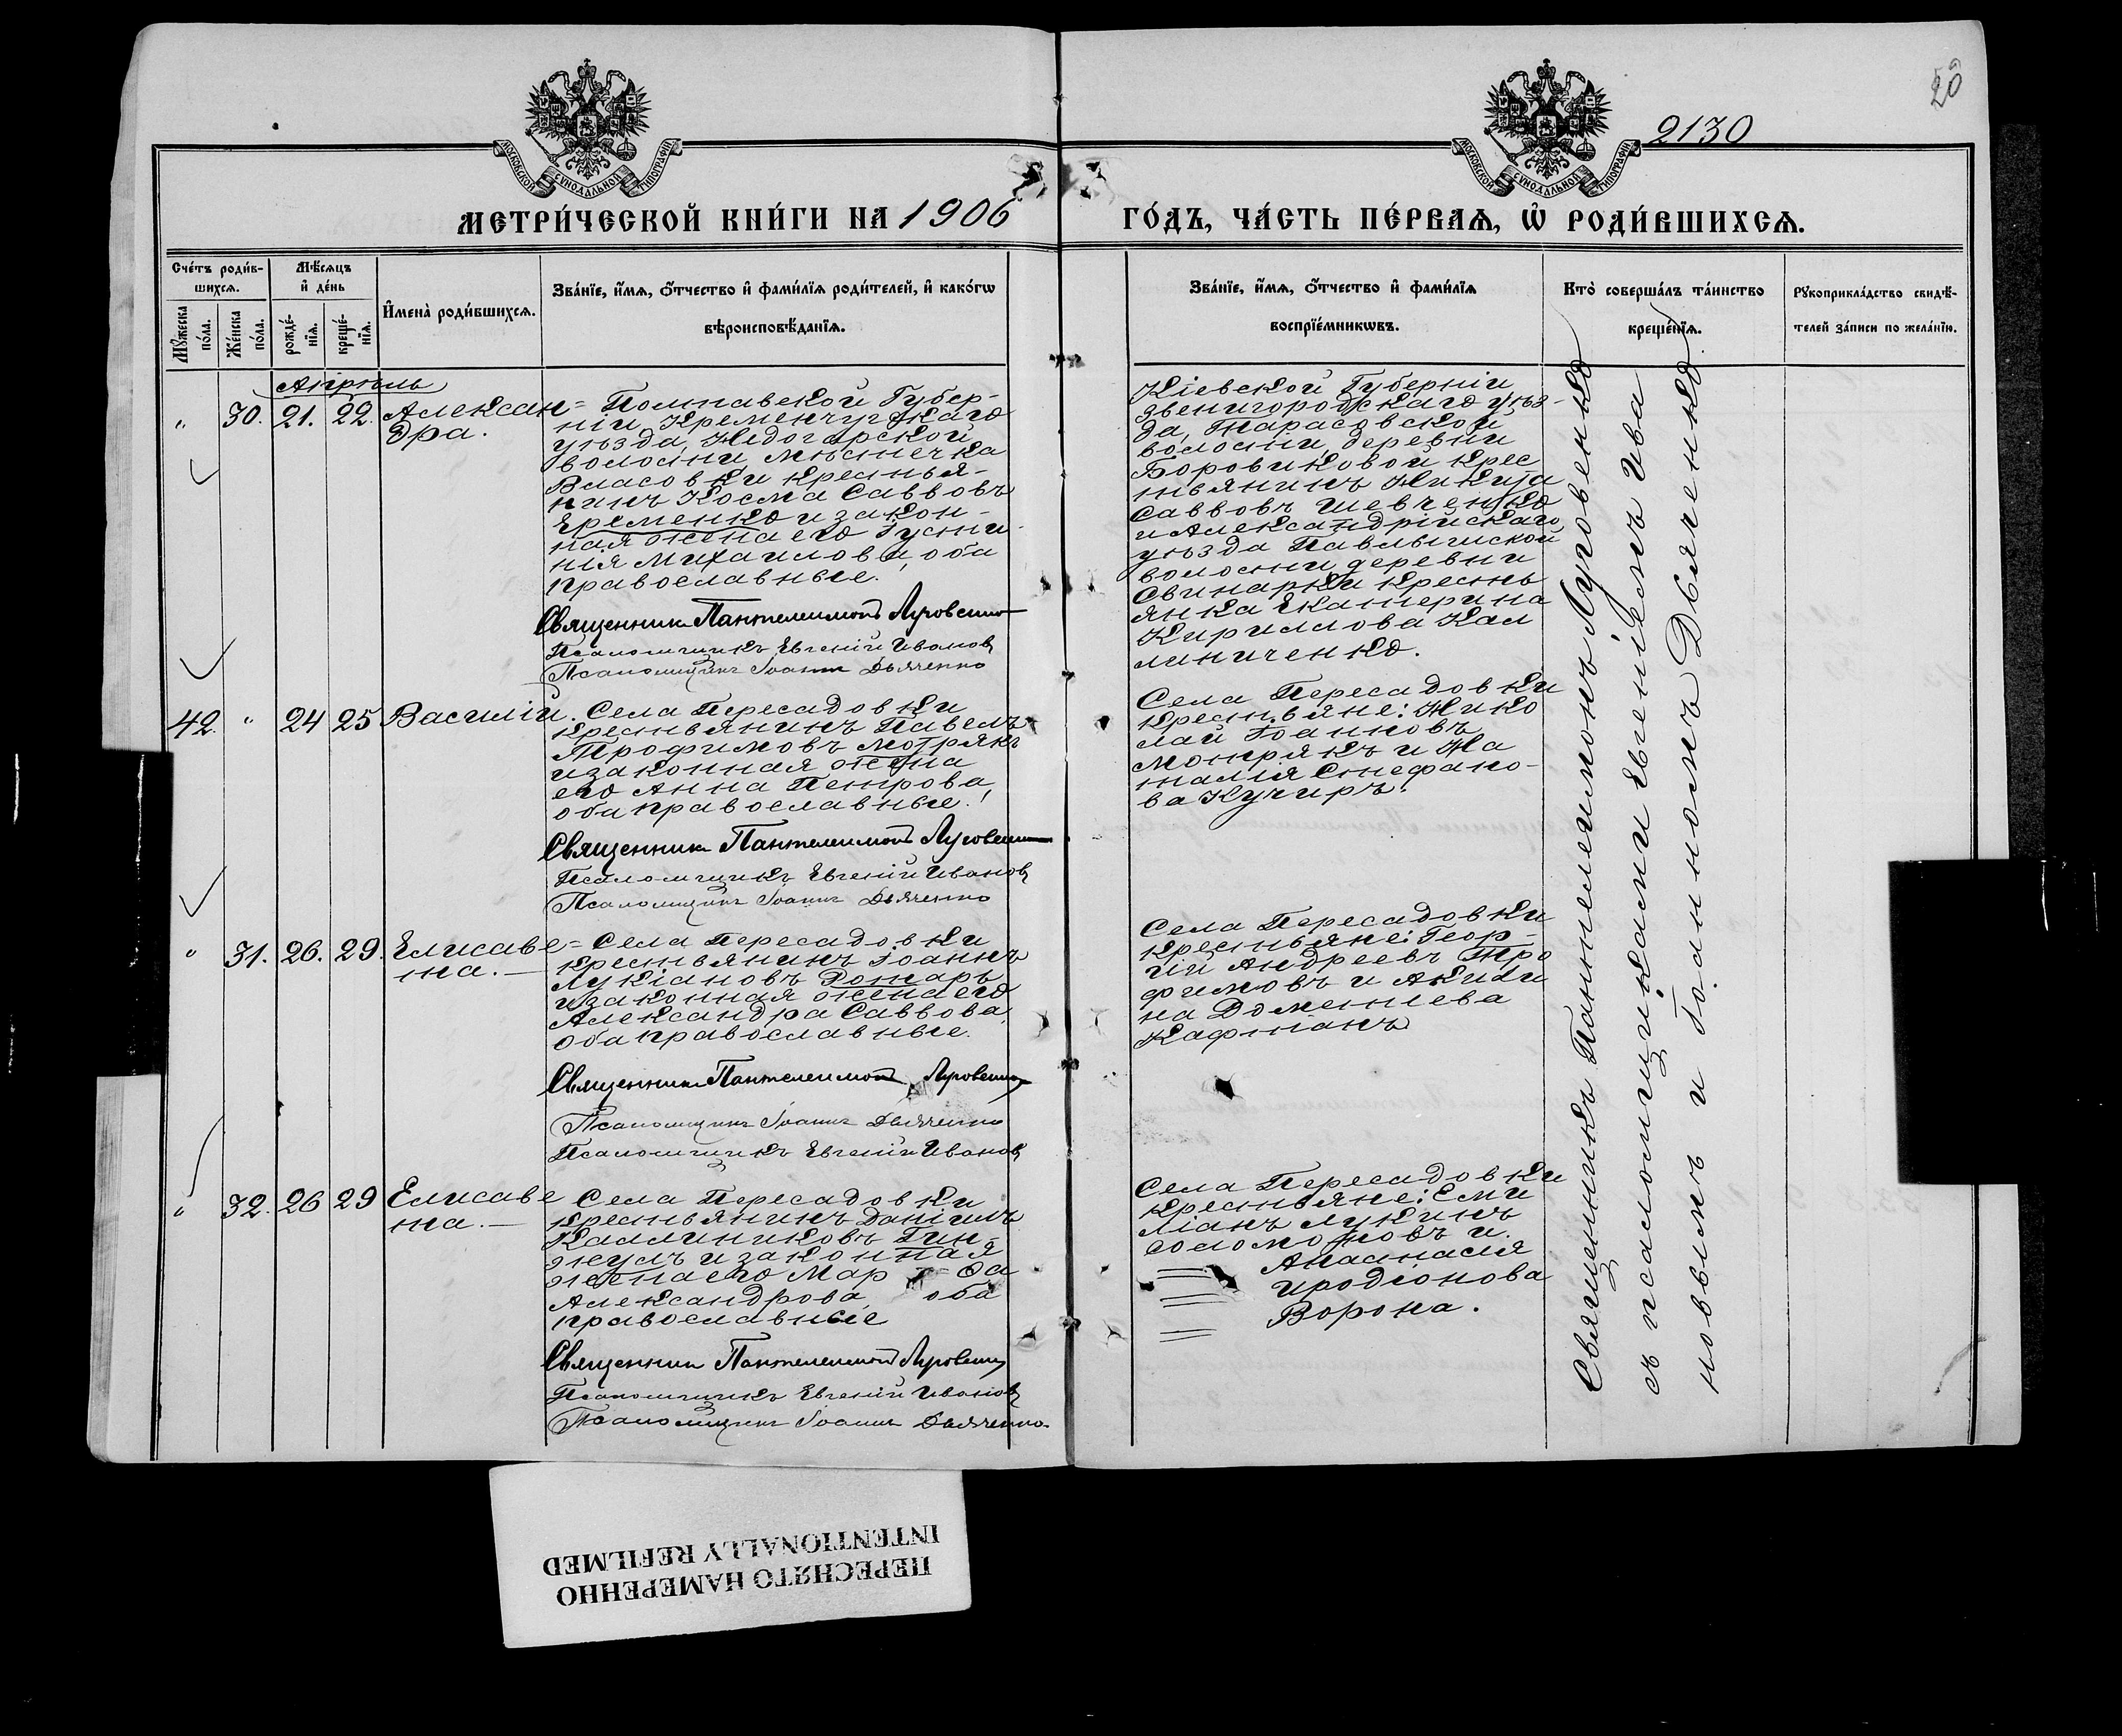 20
2130
МОСКОВСКОЙ СУНОДАЛЬНОЙ ТИПОГРАФІИ
МОСКОВСКОЙ СУНОДАЛЬНОЙ ТИПОГРАФІИ
МЕТРИ́ЧЕСКОЙ КНИ́ГИ НА 1906
ГО́ДЪ, ЧА́СТЬ ПЕ́РВАѦ, Ѡ҆ РОДИ́ВШИХСѦ.
Сче́тъ роди́в-
шихсѧ.
Мꙋ́жеска
по́ла.
Же́нска
по́ла.
Мѣ́сѧцъ
и҆ де́нь
рожде́-
нїѧ.
креще́-
нїѧ.
И҆мена̀ роди́вшихсѧ.
Зва́нїе, и҆́мѧ, ѻ҆́тчество и҆ фами́лїѧ роди́телей, и҆ како́гѡ
вѣроисповѣ́данїѧ.
Зва́нїе, и҆́мѧ, ѻ҆́тчество и҆ фами́лїѧ
воспрїе́мникѡвъ.
Кто̀ соверша́лъ та́инство
креще́нїѧ.
Рꙋкоприкла́дство свидѣ́-
телей за́писи по жела́нїю.
Апрѣль
" 30. 21. 22. Алексан=
дра.
Полтавской Губер-
ніи, Кременчугскаго
уѣзда, Недогарской
волости, мѣстечка
Власовки крестья-
нинъ Косма Саввовъ
Еременко и закон-
ная жена его Густи-
нія Михаилова, оба
православные.
Священникъ Пантелеимонъ Луговенко
Псаломщикъ Евгеній Ивановъ
Псаломщикъ Іоаннъ Дьяченко
Кіевской Губерніи
Звенигородскаго уѣз-
да, Тарасовской
волости, деревни
Боровиковой крес-
тьянинъ Никита
Саввовъ Шевченко
и Александрійскаго
уѣзда Павлышской
волости деревни
Свинарки кресть
янка Екатерина
Кириллова Кал
линиченко.
42. " 24 25 Василій.
Села Пересадовки
крестьянинъ Павелъ
Трофимовъ Мотрякъ
и законная жена
его Анна Петрова,
оба православные.
Священникъ Пантелеимонъ Луговенко
Псаломщикъ Евгеній Ивановъ
Псаломщикъ Іоаннъ Дьяченко
Села Пересадовки
крестьяне: Нико
лай Іоанновъ
Мотрякъ и На
талія Стефано-
ва Кучиръ.
" 31. 26. 29. Елисаве=
та.—
Села Пересадовки
крестьянинъ Іоаннъ
Лукіановъ Ротарь
и законная жена его
Александра Саввова,
оба православные.
Священникъ Пантелеимонъ Луговенко
Псаломщикъ Іоаннъ Дьяченко
Псаломщикъ Евгеній Ивановъ
Села Пересадовки
крестьяне: Геор-
гій Андреевъ Тро
фимовъ и Акили
на Дометіева
Кафтанъ
" 32. 26 29 Елисаве
та.—
Села Пересадовки
крестьянинъ Даніилъ
Каллиниковъ Гин-
жулъ и законная
жена его
Александрова, оба
православные
Священникъ Пантелеимонъ Луговенко
Псаломщикъ Евгеній Ивановъ
Псаломщикъ Іоаннъ Дьяченко
Села Пересадовки
крестьяне: Еми
ліанъ Лукинъ
Соломоновъ и
Анастасія
Иродіонова
Ворона.
Священникъ Пантелеимонъ Луговенко
съ псаломщиками Евгеніемъ Ива
новымъ и Іоанномъ Дьяченко.
ПЕРЕСНЯТО НАМЕРЕННО
INTENTIONALLY REFILMED